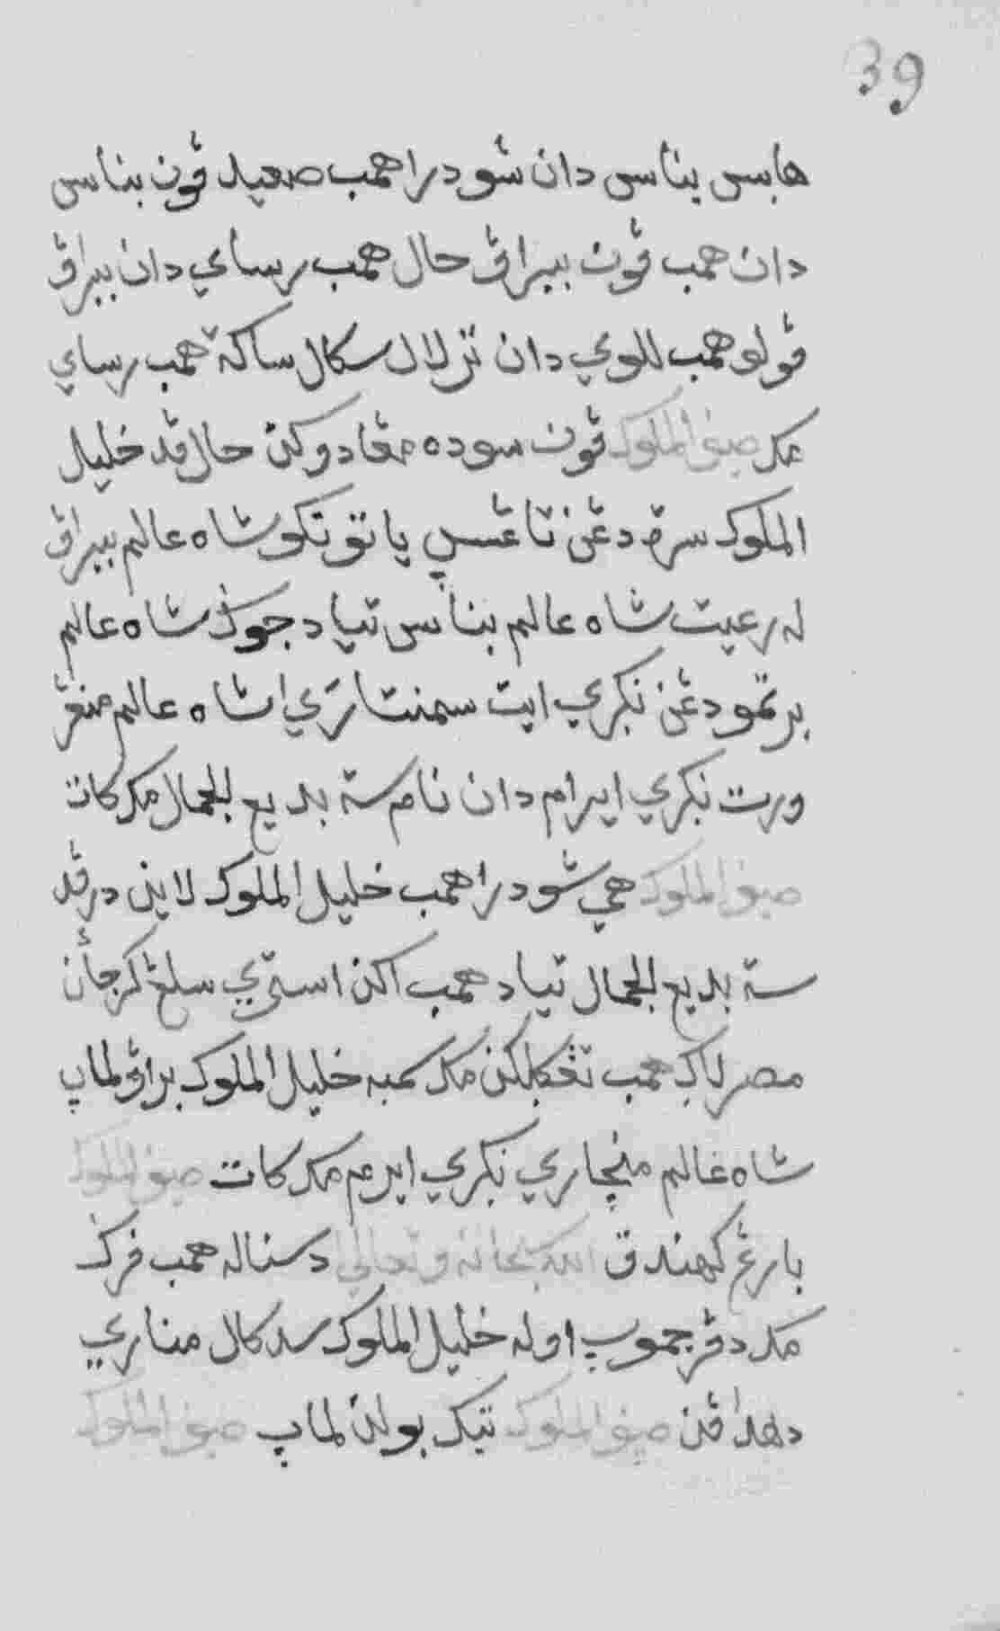 39
هابس بناس دان سودرا همب صعيد ڤون بناس
دان همب ڤون ببراڤ حال همب رساي دان ببراڤ
ڤولو همب للوي دان تر لالل سكال ساكة همب رساي
مك صيف الملوك ڤون سوده مڠادوكن حالڤد خليل
الملوك سرة دڠن تاڠسڽ ياتو تنكو شاه عالم ببراڤ
له رعيت شاه عالم بناس تياد جوݢ شاه عالم
برتمو دڠن نكري ايت سمنتاري شاه عالم منڠر
ورت نكري ايرام دان نام ستي بديع الجمال مك كات
صيف الملوك هي سودرا همب خليل الملوك لاين درڤد
ستي بديع الجمال تياد همب اكن استري سلڠكن كرجأن
مصر لاݢ همب تڠݢلكن مك سمبه خليل الملوك براڤ لماڽ
شاه عالم منچاري نكري ايرم مك كات صيف الملوك
بارڠ كهندق الله سبحانه وتعالى دسناله همب ڤرݢ
مك دڤرجموڽ اوله خليل الملوك سدكال مناري
دهداڤن صيف الملوك تيݢ بولن لماڽ صيف الملوك